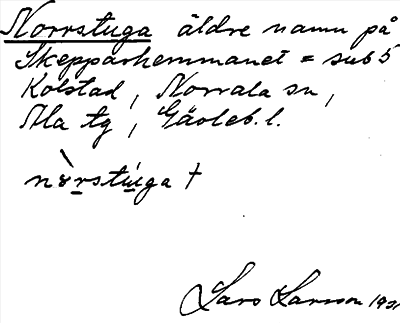 Norrstuga äldre namn på
Skepparhemmanet = sub 5
Kolstad, Norrala sn,
Ala tg, Gävleb. l.
nòrstúga †
Lars Larsson